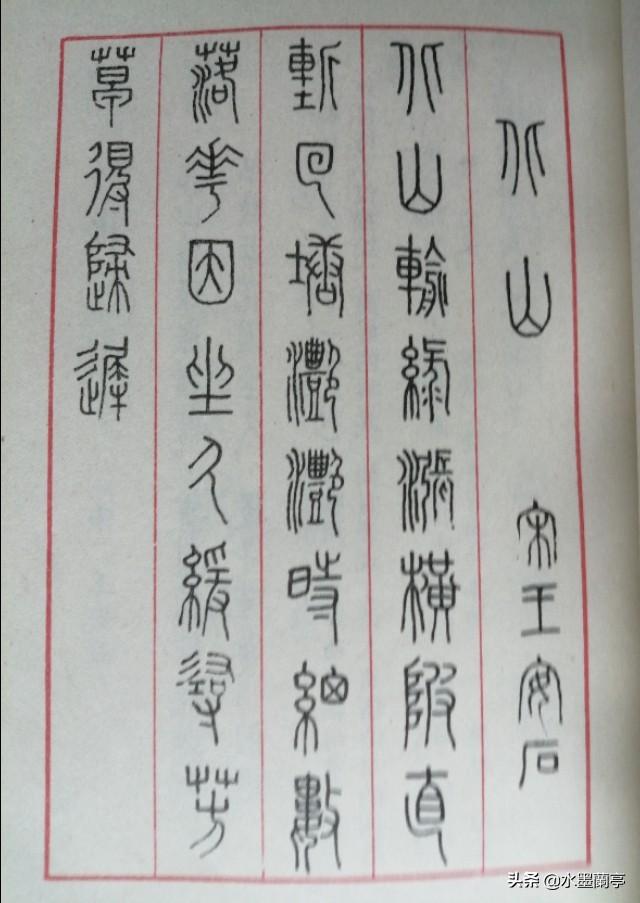 北山 宋王安石
北山輸綠漲橫陂直
塹回塘灩灩時細數
落花因坐久緩尋芳
草得歸遲
头条 @水墨蘭亭